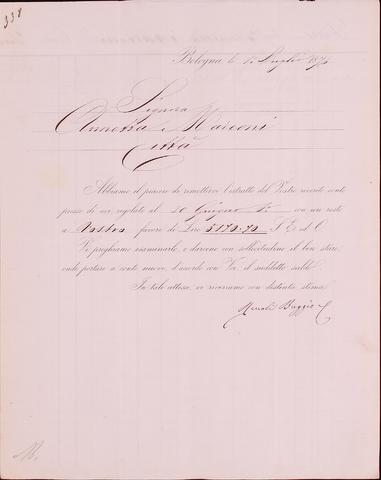 338
Bologna li 15 Luglio 187
Signora
Annetta Marconi
Città
Abbiamo il piacere di rimettervi l'estratto del Vostro vecchio conto
presso di noi regolato al 30 Giugno con un resto
a Nostro favore di Lire 5170.70 S. E. ed O.
Vi preghiamo esaminarlo, e darcene con sollecitudine il ben stare,
onde portare a conto nuovo, d'accordo con Voi, il suddetto saldo.
In tale attesa, vi riveriamo con distinta stima